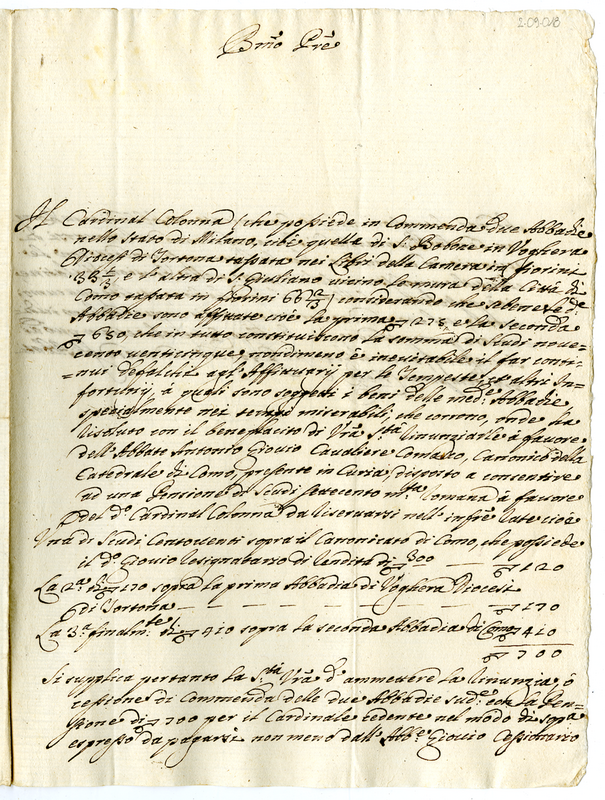 2-09-018
Bmo Pre
Il Cardinal Colonna (che possiede in Commenda due Abbadie
nello Stato di Milano, cioè quella di S. Bobone in Voghera
Diocesi di Tortona tassata nei Libri della Camera in fiorini
33 1/3, e l'altra di S. Giuliano vicino le mura della Città di
Como tassata in fiorini 66 2/3) considerando che sebene le de
Abbadie sono affittate cioè la prima 275, e la seconda
650, che in tutto constituiscono la somma di Scudi nove-
cento venticinque, nondimeno è inevitabile il far conti-
nui defalchi agl'Affittuarij per le Tempeste, et altri In-
fortunij, à quali sono soggetti i beni delle mede Abbadie
specialmente nei tempi miserabili, che corrono, onde ha
risoluto con il beneplacito di Vra Sta rinunziarle à favore
dell'Abbate Antonio Giovio Cavaliere Comasco, Canonico della
Catedrale di Como, presente in Curia, disposto a consentire
ad una Pensione di Scudi settecento mta Romana à favore
del do Cardinal Colonna da riservarsi nell'infre rate cioè
Una di Scudi Centoventi sopra il Canonicato di Como, che possiede
il do Giovio resignatario di rendita di 300 — 120
La 2a di 170 sopra la prima Abbadia di Voghera Diocesi
di Tortona — — — — — 170
La 3a finalmte di 410 sopra la seconda Abbadia di Como 410
700
Si supplica pertanto la Sta Vra d'ammettere la rinunzia, ò
cessione di Commenda delle due Abbadie sude con la Pen-
sione di 700 per il Cardinale cedente nel modo di sopa
espresso da pagarsi non meno dall'Abbe Giovio Cessionario